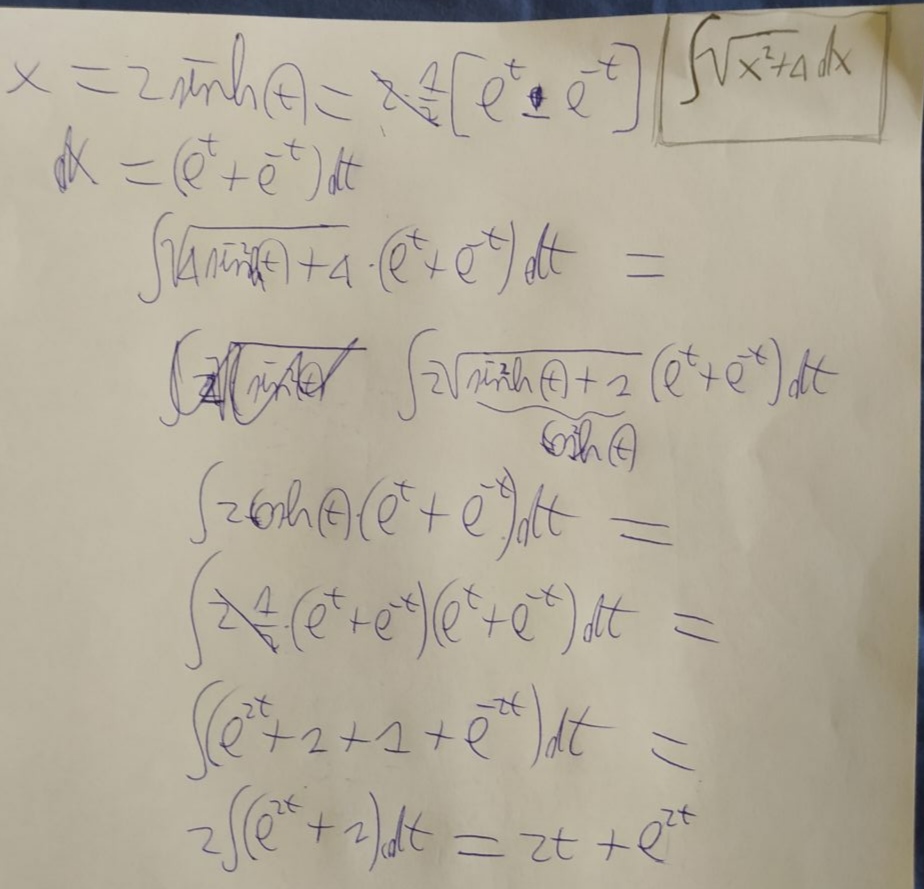 x = 2 sinh(t) = 2·½[eᵗ - e⁻ᵗ] ∫√(x²+4) dx
dx = (eᵗ + e⁻ᵗ)dt
∫√(4sin²h(t) + 4) · (eᵗ + e⁻ᵗ) dt =
∫2√(sin²h(t) + 1) (eᵗ + e⁻ᵗ) dt
cos²h(t)
∫2cosh(t)·(eᵗ + e⁻ᵗ)dt =
∫2·½·(eᵗ + e⁻ᵗ)(eᵗ + e⁻ᵗ) dt =
∫(e²ᵗ + 1 + 1 + e⁻²ᵗ)dt =
2∫(e²ᵗ + 1)dt = 2t + e²ᵗ